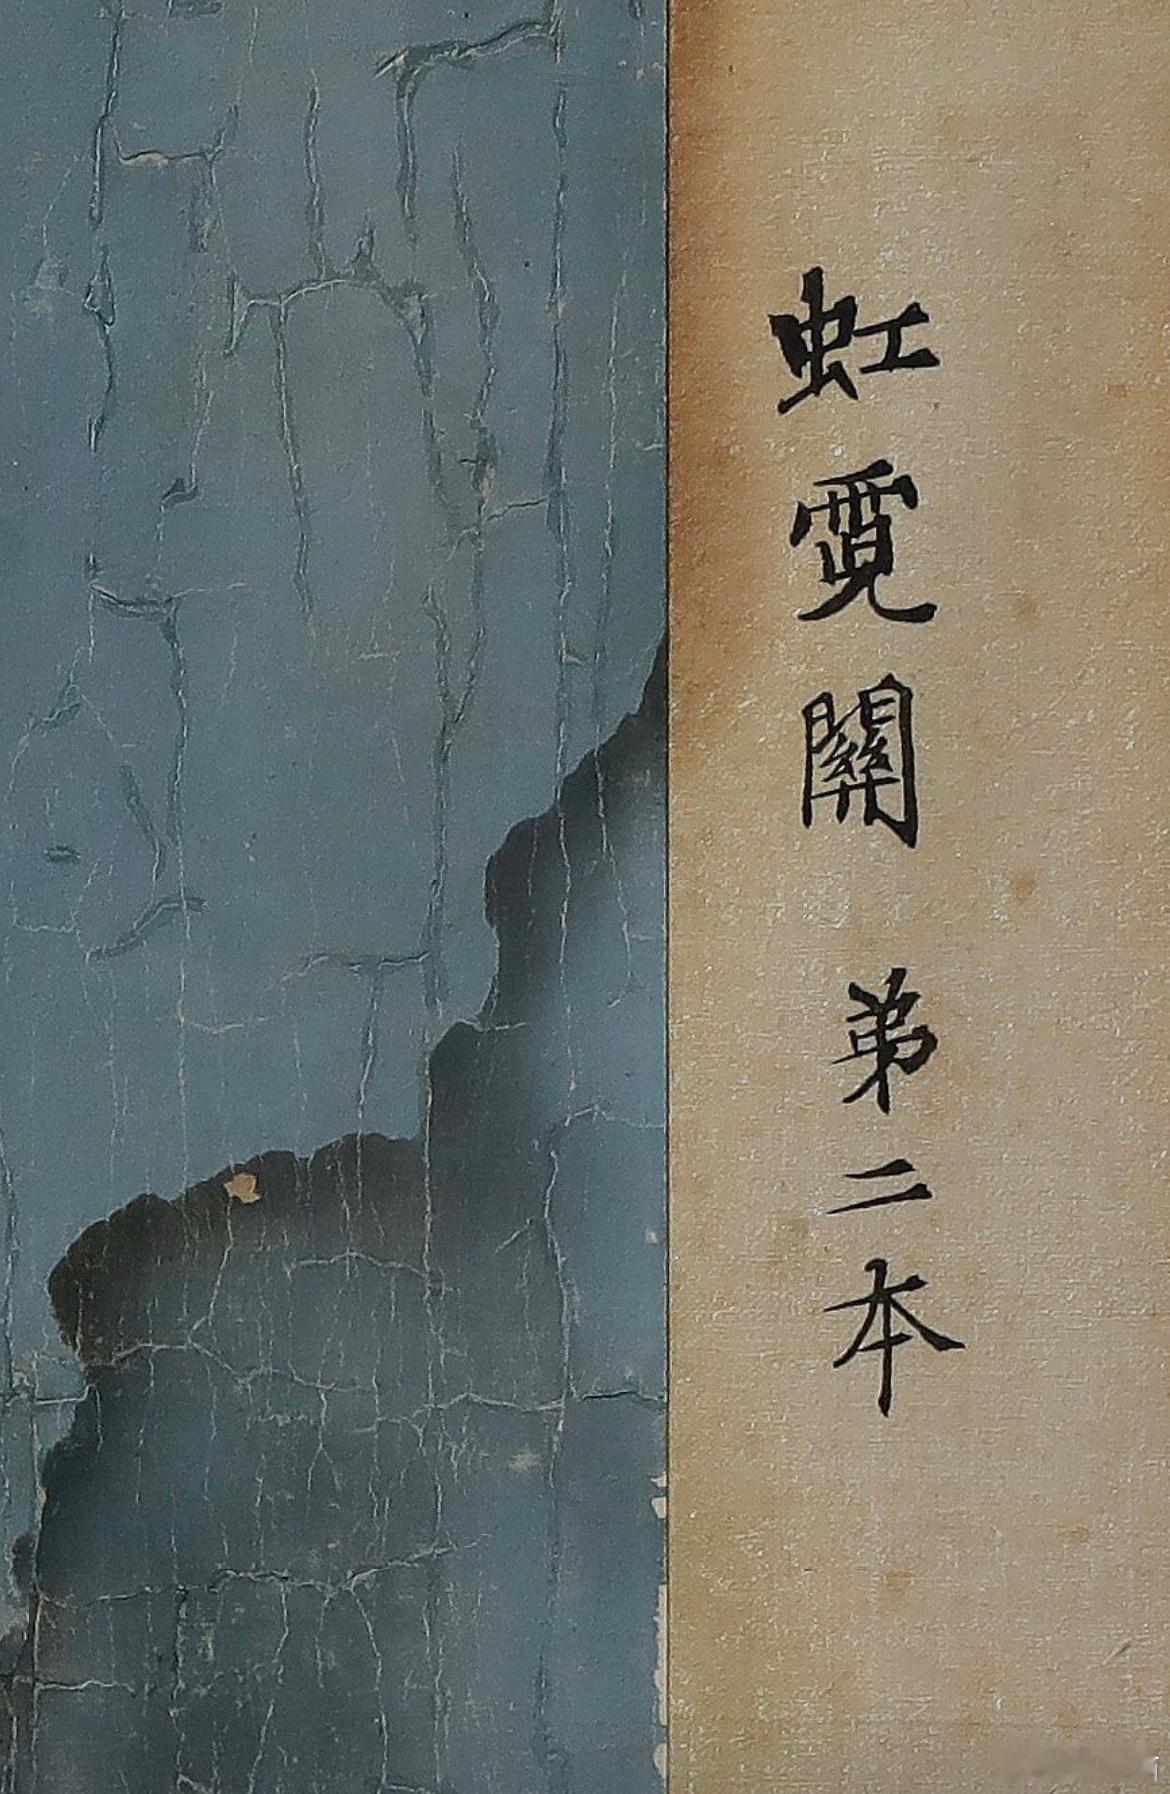 虹霓關 弟二本